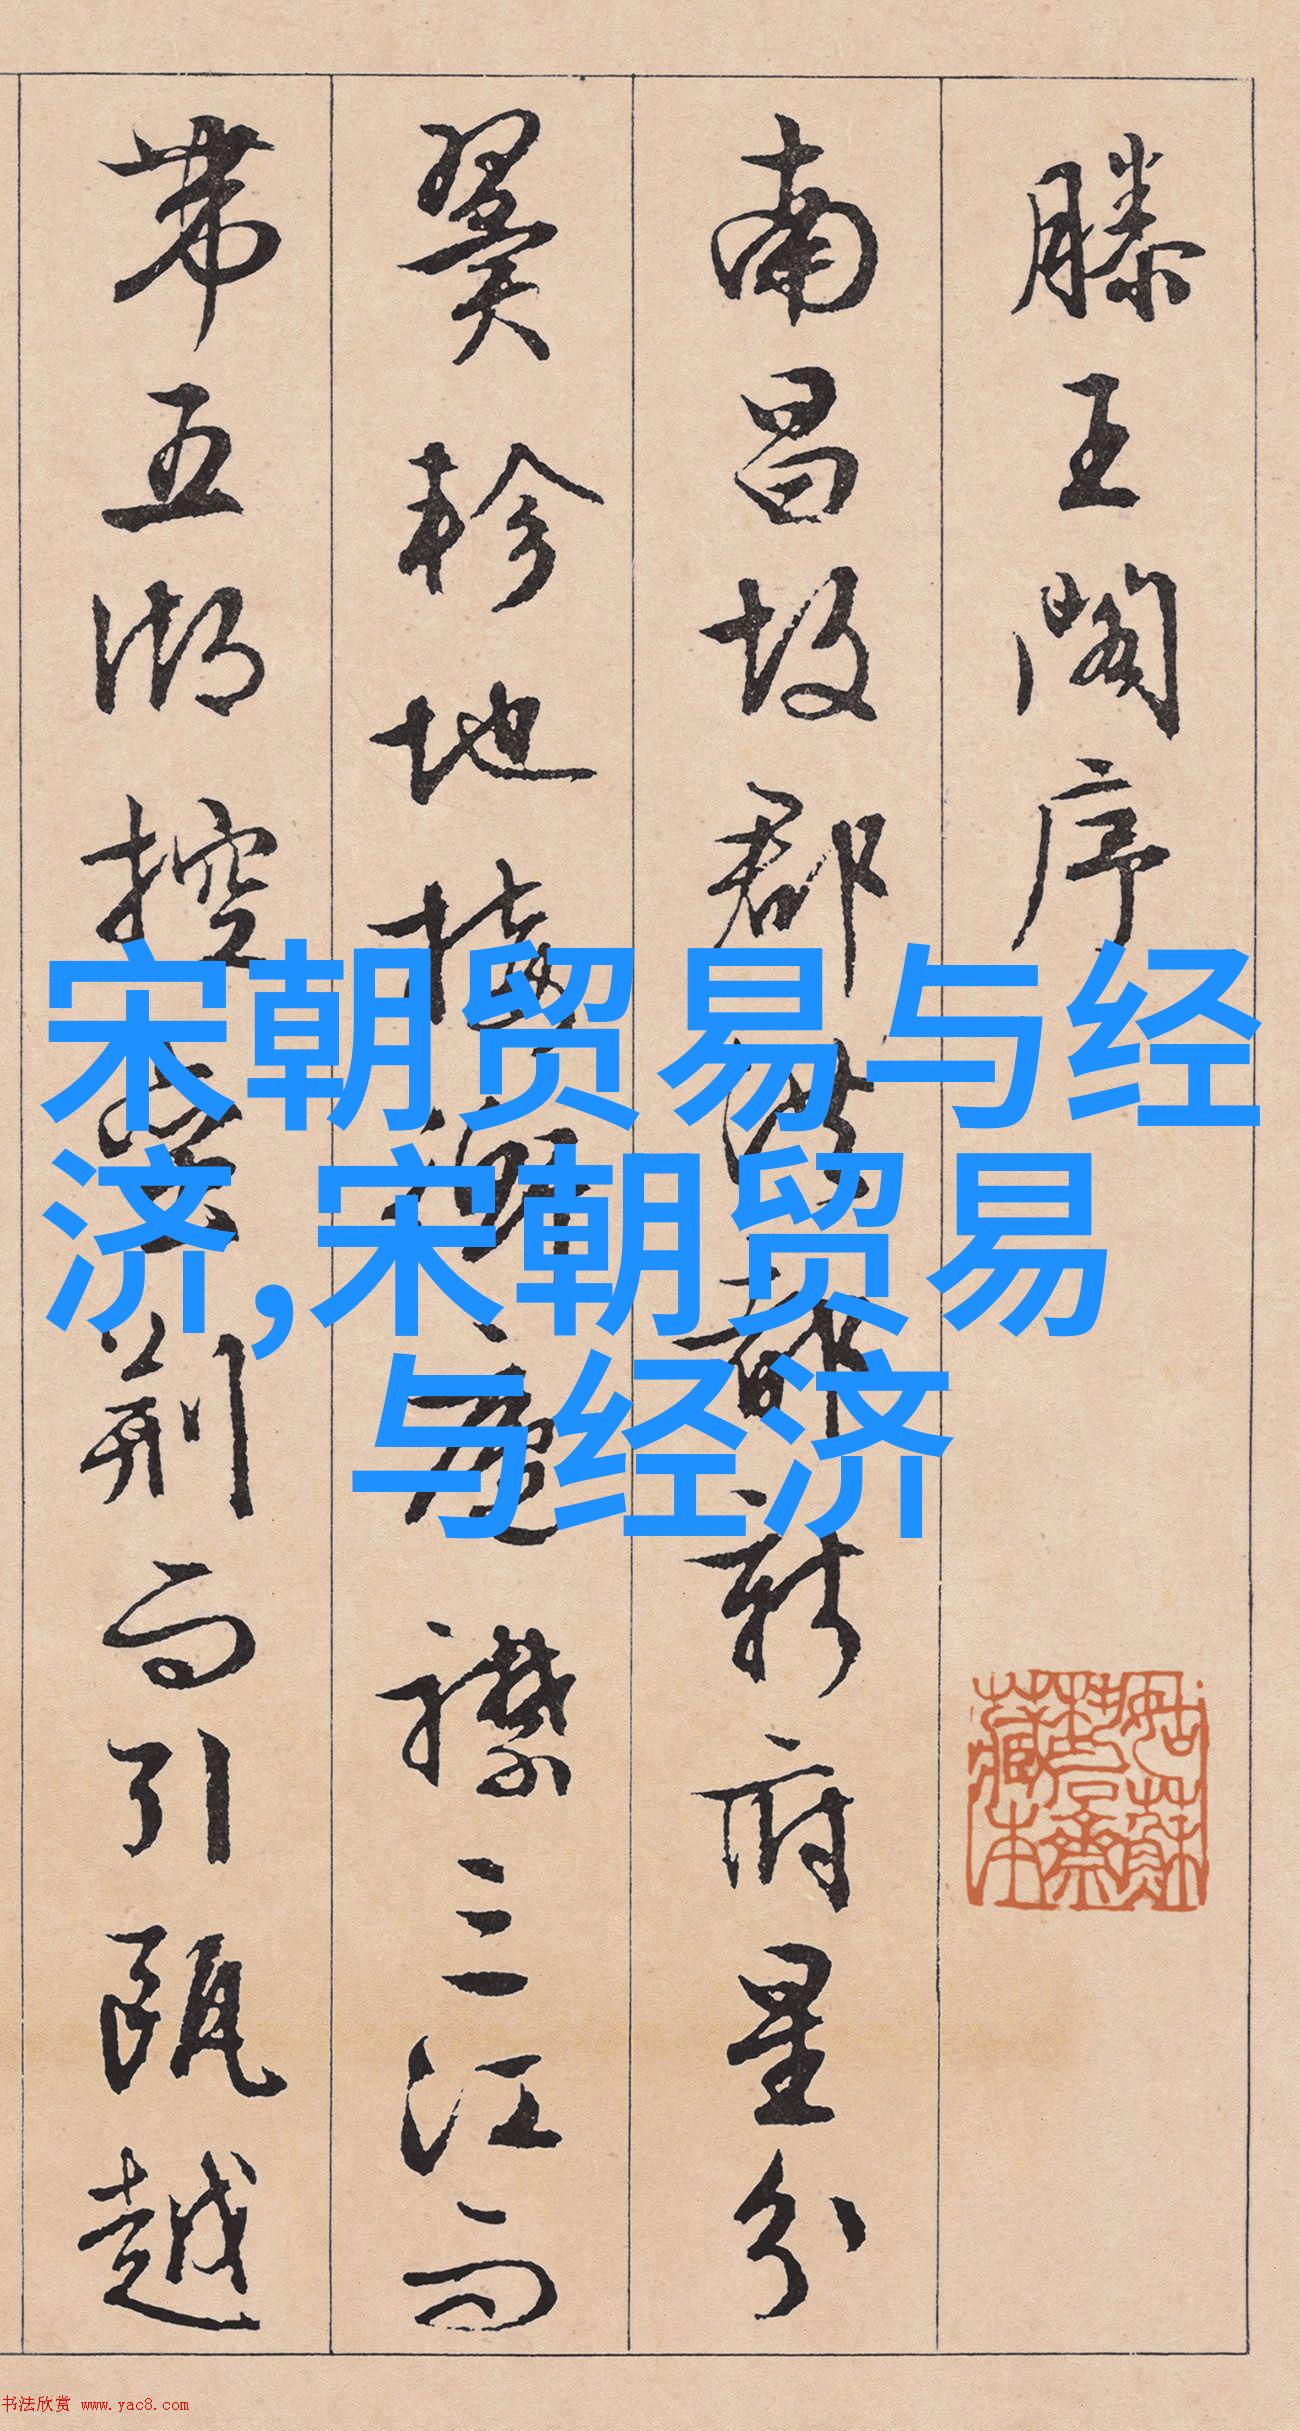 滕王閣序
南昌故郡洪都新府星分
翼軫地接衡廬襟三江而
帶五湖控蠻荊而引甌越
宋朝贸易与经
济,宋朝贸易
与经济
姑蘇
藏本
书法欣赏 www.yac8.com